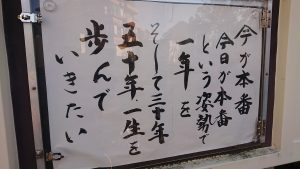 今が本番
今日が本番
という姿勢で
一年を
そして三十年
五十年、一生を
歩んで
いきたい